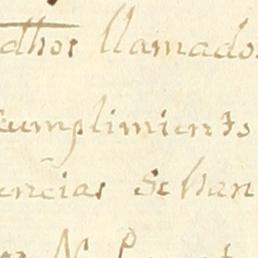 dhos llamados
cumplimiento
encias se han